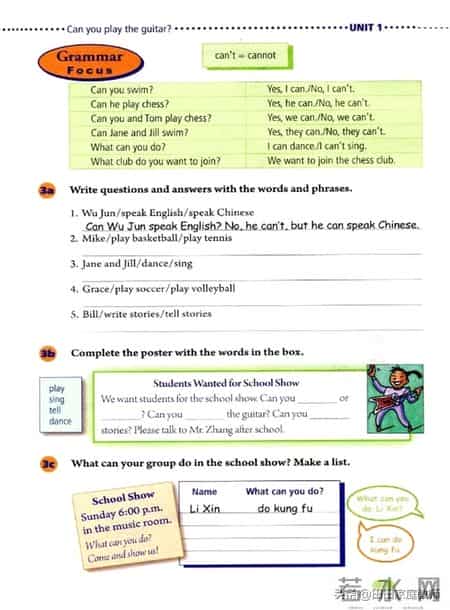 Can you play the guitar?
UNIT 1
Grammar
Focus
can't = cannot
Can you swim? Yes, I can./No, I can't.
Can he play chess? Yes, he can./No, he can't.
Can you and Tom play chess? Yes, we can./No, we can't.
Can Jane and Jill swim? Yes, they can./No, they can't.
What can you do? I can dance./I can't sing.
What club do you want to join? We want to join the chess club.
3a Write questions and answers with the words and phrases.
1. Wu Jun/speak English/speak Chinese
Can Wu Jun speak English? No, he can't, but he can speak Chinese.
2. Mike/play basketball/play tennis
3. Jane and Jill/dance/sing
4. Grace/play soccer/play volleyball
5. Bill/write stories/tell stories
3b Complete the poster with the words in the box.
play
sing
tell
dance
Students Wanted for School Show
We want students for the school show. Can you ________ or
________? Can you ________ the guitar? Can you ________
stories? Please talk to Mr. Zhang after school.
3c What can your group do in the school show? Make a list.
School Show
Sunday 6:00 p.m.
in the music room.
What can you do?
Come and show us!
Name What can you do?
Li Xin do kung fu
What can you
do, Li Xin?
I can do
kung fu.
若水网